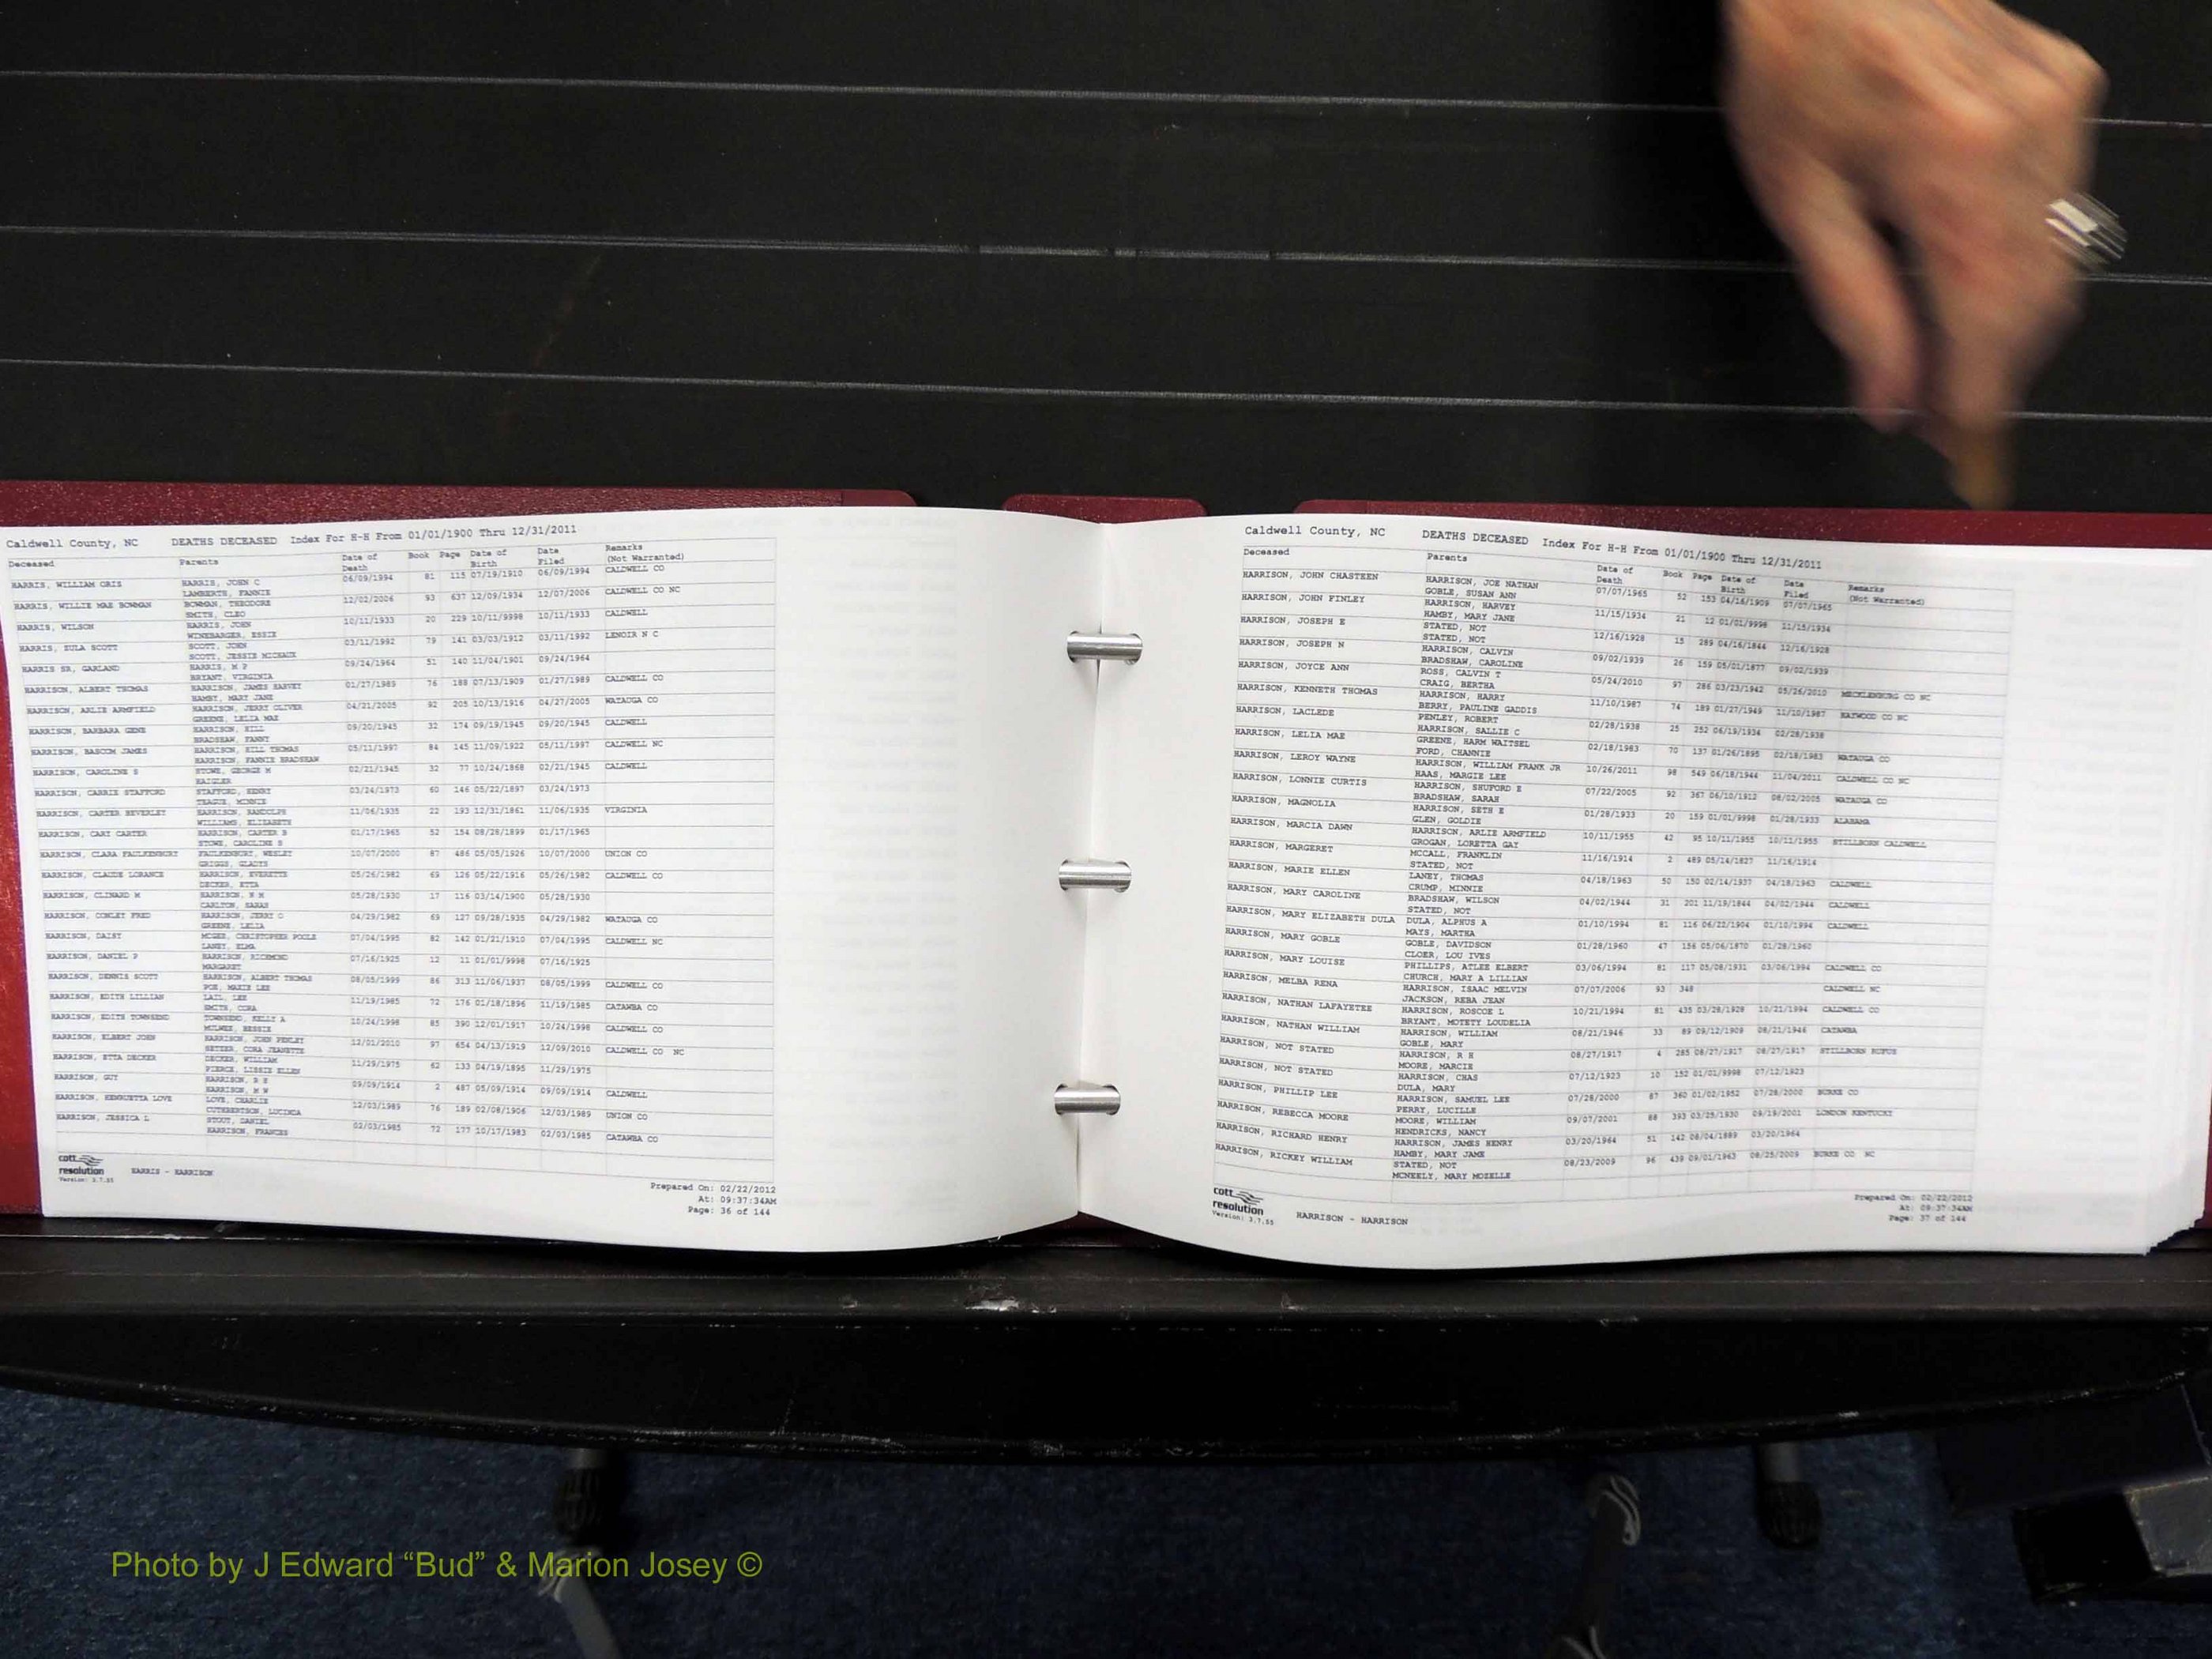 Caldwell County, NC DEATHS DECEASED Index For H-H From 01/01/1900 Thru 12/31/2011
Deceased Parents Date of Death Book Page Date of Birth Date Filed Remarks (Not Warranted)
HARRIS, WILLIAM ORIS HARRIS, JOHN C 06/09/1994 81 115 07/19/1910 06/09/1994 CALDWELL CO
LAMBERTH, FANNIE
HARRIS, WILLIE MAE BOWMAN BOWMAN, THEODORE 12/02/2006 93 637 12/09/1934 12/07/2006 CALDWELL CO NC
SMITH, CLEO
HARRIS, WILSON HARRIS, JOHN 10/11/1933 20 229 10/11/9998 10/11/1933 CALDWELL
WINEBARGER, ESSIE
HARRIS, ZULA SCOTT SCOTT, JOHN 03/11/1992 79 141 03/03/1912 03/11/1992 LENOIR N C
SCOTT, JESSIE MICHAUX
HARRIS SR, GARLAND HARRIS, M P 09/24/1964 51 140 11/04/1901 09/24/1964
BRYANT, VIRGINIA
HARRISON, ALBERT THOMAS HARRISON, JAMES HARVEY 01/27/1989 76 188 07/13/1909 01/27/1989 CALDWELL CO
HAMBY, MARY JANE
HARRISON, ARLIE ARMFIELD HARRISON, JERRY OLIVER 04/21/2005 92 205 10/13/1916 04/27/2005 WATAUGA CO
GREENE, LELIA MAE
HARRISON, BARBARA GENE HARRISON, HILL 09/20/1945 32 174 09/19/1945 09/20/1945 CALDWELL
BRADSHAW, FANNY
HARRISON, BASCOM JAMES HARRISON, HILL THOMAS 05/11/1997 84 145 11/09/1922 05/11/1997 CALDWELL NC
HARRISON, FANNIE BRADSHAW
HARRISON, CAROLINE S STOWE, GEORGE M 02/21/1945 32 77 10/24/1868 02/21/1945 CALDWELL
HAIGLER
HARRISON, CARRIE STAFFORD STAFFORD, HENRY 03/24/1973 60 146 05/22/1897 03/24/1973
TEAGUE, MINNIE
HARRISON, CARTER BEVERLEY HARRISON, RANDOLPH 11/06/1935 22 193 12/31/1861 11/06/1935 VIRGINIA
WILLIAMS, ELIZABETH
HARRISON, CARY CARTER HARRISON, CARTER B 01/17/1965 52 154 08/28/1899 01/17/1965
STOWE, CAROLINE S
HARRISON, CLARA FAULKENBURY FAULKENBURY, WESLEY 10/07/2000 87 486 05/05/1926 10/07/2000 UNION CO
GRIGGS, GLADYS
HARRISON, CLAUDE LORANCE HARRISON, EVERETTE 05/26/1982 69 126 05/22/1916 05/26/1982 CALDWELL CO
DECKER, ETTA
HARRISON, CLINARD M HARRISON, R H 05/28/1930 17 116 03/14/1900 05/28/1930
CARLTON, SARAH
HARRISON, CONLEY FRED HARRISON, JERRY O 04/29/1982 69 127 09/28/1935 04/29/1982 WATAUGA CO
GREENE, LELIA
HARRISON, DAISY MCGEE, CHRISTOPHER POOLE 07/04/1995 82 142 01/21/1910 07/04/1995 CALDWELL NC
LANEY, ELMA
HARRISON, DANIEL P HARRISON, RICHMOND 07/16/1925 12 11 01/01/9998 07/16/1925
MARGARET
HARRISON, DENNIS SCOTT HARRISON, ALBERT THOMAS 08/05/1999 86 313 11/06/1937 08/05/1999 CALDWELL CO
POE, MAZIE LEE
HARRISON, EDITH LILLIAN LAIL, LEE 11/19/1985 72 176 01/18/1896 11/19/1985 CATAWBA CO
SMITH, CORA
HARRISON, EDITH TOWNSEND TOWNSEND, KELLY A 10/24/1998 85 390 12/01/1917 10/24/1998 CALDWELL CO
MCLWEE, BESSIE
HARRISON, ELBERT JOHN HARRISON, JOHN FENLEY 12/01/2010 97 654 04/13/1919 12/09/2010 CALDWELL CO NC
SETZER, CORA JEANETTE
HARRISON, ETTA DECKER DECKER, WILLIAM 11/29/1975 62 133 04/19/1895 11/29/1975
PIERCE, LIZZIE ELLEN
HARRISON, GUY HARRISON, R E 09/09/1914 2 487 05/09/1914 09/09/1914 CALDWELL
HARRISON, M W
HARRISON, HENRUETTA LOVE LOVE, CHARLIE 12/03/1989 76 189 02/08/1906 12/03/1989 UNION CO
CUTHBERTSON, LUCINDA
HARRISON, JESSICA L STOUT, DANIEL 02/03/1985 72 177 10/17/1983 02/03/1985 CATAWBA CO
HARRISON, FRANCES
cott
resolution HARRIS - HARRISON
Version: 3.7.55
Prepared On: 02/22/2012
At: 09:37:34AM
Page: 36 of 144
Caldwell County, NC DEATHS DECEASED Index For H-H From 01/01/1900 Thru 12/31/2011
Deceased Parents Date of Death Book Page Date of Birth Date Filed Remarks (Not Warranted)
HARRISON, JOHN CHASTEEN HARRISON, JOE NATHAN 07/07/1965 52 153 04/16/1909 07/07/1965
GOBLE, SUSAN ANN
HARRISON, JOHN FINLEY HARRISON, HARVEY 11/15/1934 21 12 01/01/9998 11/15/1934
HAMBY, MARY JANE
HARRISON, JOSEPH E STATED, NOT 12/16/1928 15 289 04/16/1844 12/16/1928
STATED, NOT
HARRISON, JOSEPH N HARRISON, CALVIN 09/02/1939 26 159 05/01/1877 09/02/1939
BRADSHAW, CAROLINE
HARRISON, JOYCE ANN ROSS, CALVIN T 05/24/2010 97 286 03/23/1942 05/26/2010 MECKLENBURG CO NC
CRAIG, BERTHA
HARRISON, KENNETH THOMAS HARRISON, HARRY 11/10/1987 74 189 01/27/1949 11/10/1987 HAYWOOD CO NC
BERRY, PAULINE GADDIS
HARRISON, LACLEDE PENLEY, ROBERT 02/28/1938 25 252 06/19/1934 02/28/1938
HARRISON, SALLIE C
HARRISON, LELIA MAE GREENE, HARM WAITSEL 02/18/1983 70 137 01/26/1895 02/18/1983 WATAUGA CO
FORD, CHANNIE
HARRISON, LEROY WAYNE HARRISON, WILLIAM FRANK JR 10/26/2011 98 549 06/18/1944 11/04/2011 CALDWELL CO NC
HAAS, MARGIE LEE
HARRISON, LONNIE CURTIS HARRISON, SHUFORD E 07/22/2005 92 367 06/10/1912 08/02/2005 WATAUGA CO
BRADSHAW, SARAH
HARRISON, MAGNOLIA HARRISON, SETH E 01/28/1933 20 159 01/01/9998 01/28/1933 ALABAMA
GLEN, GOLDIE
HARRISON, MARCIA DAWN HARRISON, ARLIE ARMFIELD 10/11/1955 42 95 10/11/1955 10/11/1955 STILLBORN CALDWELL
GROGAN, LORETTA GAY
HARRISON, MARGERET MCCALL, FRANKLIN 11/16/1914 2 489 05/14/1827 11/16/1914
STATED, NOT
HARRISON, MARIE ELLEN LANEY, THOMAS 04/18/1963 50 150 02/14/1937 04/18/1963 CALDWELL
CRUMP, MINNIE
HARRISON, MARY CAROLINE BRADSHAW, WILSON 04/02/1944 31 201 11/19/1844 04/02/1944 CALDWELL
STATED, NOT
HARRISON, MARY ELIZABETH DULA DULA, ALPHUS A 01/10/1994 81 116 06/22/1904 01/10/1994 CALDWELL
MAYS, MARTHA
HARRISON, MARY GOBLE GOBLE, DAVIDSON 01/28/1960 47 156 05/06/1870 01/28/1960
CLOER, LOU IVES
HARRISON, MARY LOUISE PHILLIPS, ATLEE ELBERT 03/06/1994 81 117 05/08/1931 03/06/1994 CALDWELL CO
CHURCH, MARY A LILLIAN
HARRISON, MELBA RENA HARRISON, ISAAC MELVIN 07/07/2006 93 348 CALDWELL NC
JACKSON, REBA JEAN
HARRISON, NATHAN LAFAYETEE HARRISON, ROSCOE L 10/21/1994 81 435 03/28/1928 10/21/1994 CALDWELL CO
BRYANT, MOTETY LOUDELIA
HARRISON, NATHAN WILLIAM HARRISON, WILLIAM 08/21/1946 33 89 09/12/1909 08/21/1946 CATAWBA
GOBLE, MARY
HARRISON, NOT STATED HARRISON, R H 08/27/1917 4 285 08/27/1917 08/27/1917 STILLBORN RUFUS
MOORE, MARCIE
HARRISON, NOT STATED HARRISON, CHAS 07/12/1923 10 152 01/01/9998 07/12/1923
DULA, MARY
HARRISON, PHILLIP LEE HARRISON, SAMUEL LEE 07/28/2000 87 360 01/02/1952 07/28/2000 BURKE CO
PERRY, LUCILLE
HARRISON, REBECCA MOORE MOORE, WILLIAM 09/07/2001 88 393 03/25/1930 09/19/2001 LONDON KENTUCKY
HENDRICKS, NANCY
HARRISON, RICHARD HENRY HARRISON, JAMES HENRY 03/20/1964 51 142 08/04/1889 03/20/1964
HAMBY, MARY JAME
HARRISON, RICKEY WILLIAM STATED, NOT 08/23/2009 96 439 09/01/1963 08/25/2009 BURKE CO NC
MCNEELY, MARY MOZELLE
cott
resolution HARRISON - HARRISON
Version: 3.7.55
Prepared On: 02/22/2012
At: 09:37:34AM
Page: 37 of 144
Photo by J Edward “Bud” & Marion Josey ©